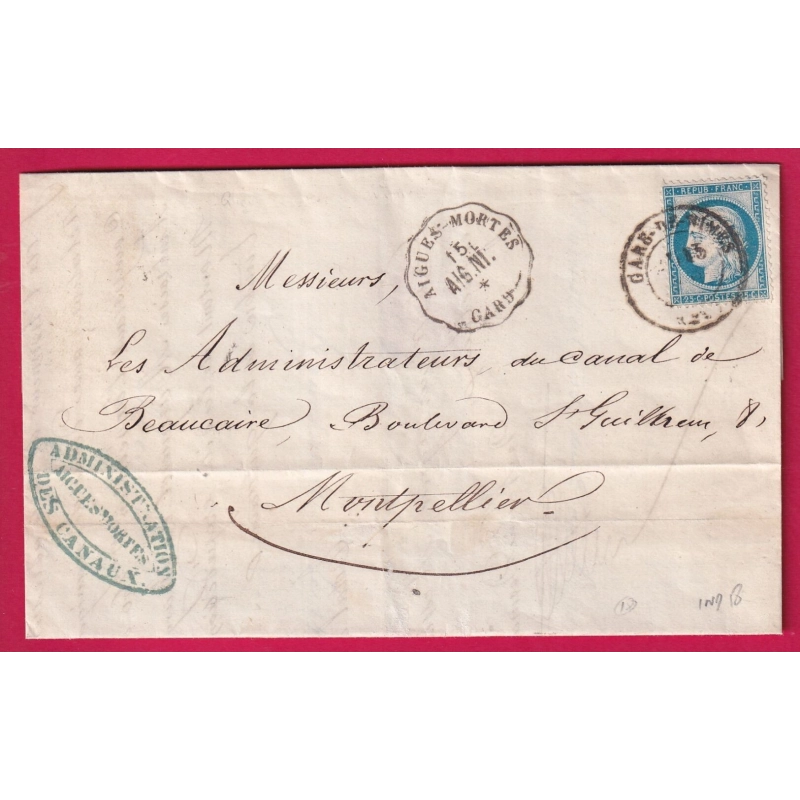 REPUB·FRANC·
25 C·POSTES 25 C·
GARE-DE-NIMES
15
AIGUES-MORTES
15
AIG.NI.
*
GARD
Messieurs,
Les Administrateurs du canal de
Beaucaire, Boulevard St Guilhem, 8,
Montpellier
ADMINISTRATION
AIGUESMORTES
DES CANAUX.
IND 18